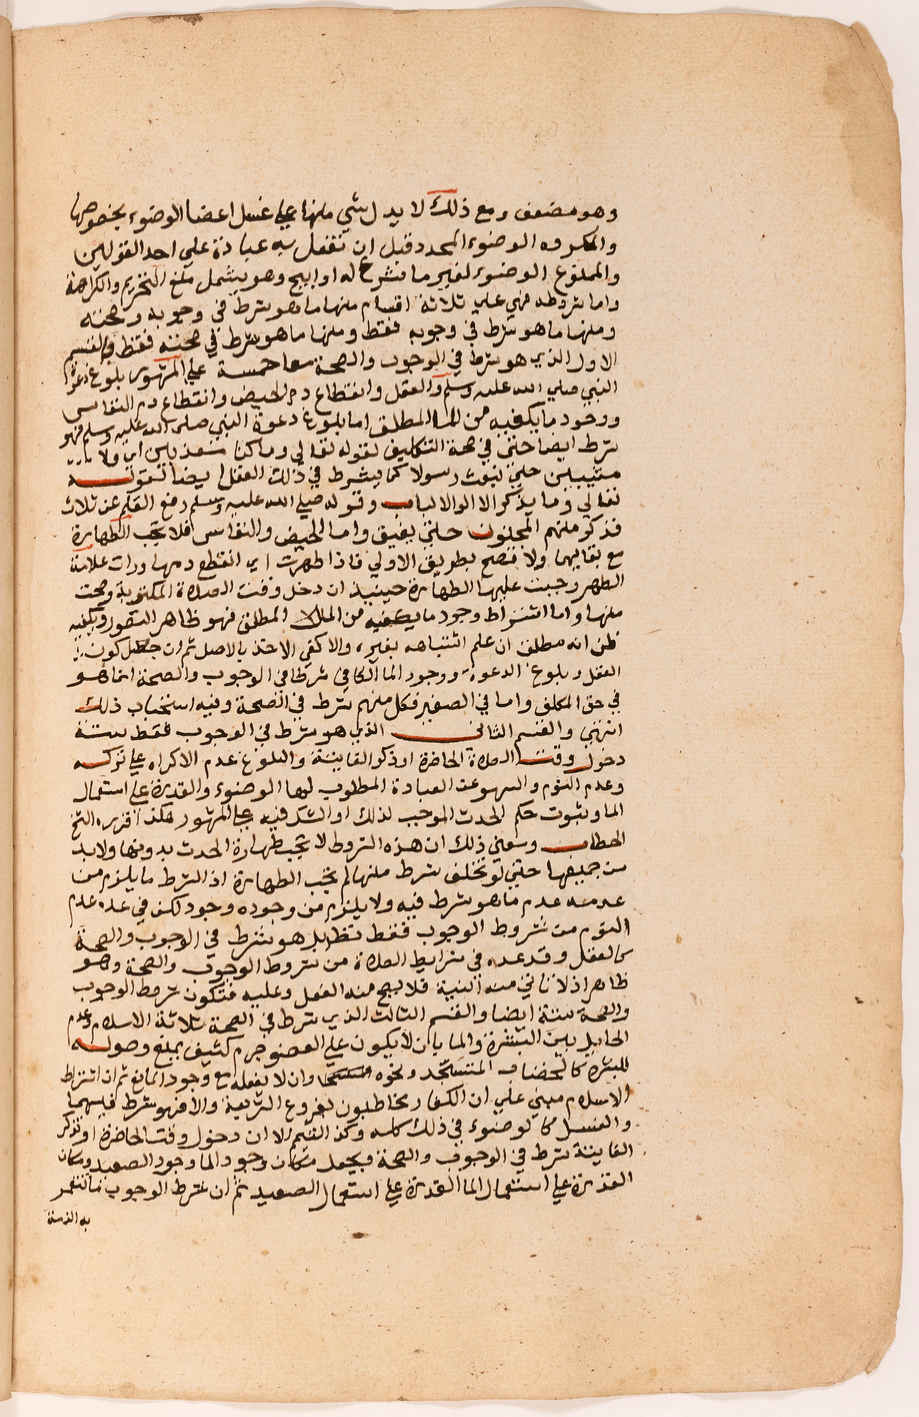 وهو مضعف ومع ذلك لا يدل شي منها علي غسل اعضا الوضوء بخصوصها
والمكروه الوضوء المجدد قبل ان تفعل به عبادة علي احد القولين
والممنوع الوضوء لغير ما شرع له او ابيح وهو يشمل منع التحريم والكراهة
واما شروطه فهي علي ثلاثة اقسام منها ما هو شرط في وجوبه وصحته
ومنها ما هو شرط في وجوبه فقط ومنها ما هو شرط في صحته فقط فالقسم
الاول الذي هو شرط في الوجوب والصحة معا خمسة علي المشهور بلوغ دعوة
النبي صلي الله عليه وسلم والعقل وانقطاع دم الحيض وانقطاع دم النفاس
ووجود ما يكفيه من الما المطلق اما بلوغ دعوة النبي صلي الله عليه وسلم فهو
شرط ايضا حتي في صحة التكليف لقوله تعالي وما كنا معذبين اي ولا
مثيبين حتي نبعث رسولا كما يشترط في ذلك العقل ايضا لقوله
تعالي وما يذكر الا اولوا الالباب وقوله صلي الله عليه وسلم رفع القلم عن ثلاث
فذكر منهم المجنون حتي يفيق واما الحيض والنفاس فلا تجب الطهارة
مع بقايهما ولا تصح بطريق الاولي فاذا طهرت اي انقطع دمها ورات علامة
الطهر وجبت عليها الطهارة حينيذ ان دخل وقت الصلاة المكتوبة وصحت
منها واما اشتراط وجود ما يكفيه من الما المطلق فهو ظاهر التصور ويكفيه
ظن انه مطلق ان علم اشتباهه بغيره والا كفي الاخذ بالاصل ثم ان جعل كون
العقل وبلوغ الدعوة ووجود الما الكافي شرطا في الوجوب والصحة انما هو
في حق المكلف واما في الصغير فكل منهم شرط في الصحة وفيه استحباب ذلك
انتهي والقسم الثاني الذي هو شرط في الوجوب فقط ستة
دخول وقت الصلاة الحاضرة او ذكر الفايتة والبلوغ عدم الاكراه علي تركه
وعدم النوم والسهو عن العبادة المطلوب لها الوضوء والقدرة علي استعمال
الما وثبوت حكم الحدث الموجب لذلك او الشك فيه علي المشهور هكذا قرره الشيخ
الحطاب ومعني ذلك ان هذه الشروط لا تجب طهارة الحدث بدونها ولا بد
من جميعها حتي لو تخلف شرط منها لم تجب الطهارة اذ الشرط ما يلزم من
عدمه عدم ما هو شرط فيه ولا يلزم من وجوده وجود لكن في عده عدم
النوم من شروط الوجوب فقط نظر بل هو شرط في الوجوب والصحة
كالعقل وقد عده في شرايط الصلاة من شروط الوجوب والصحة وهو
ظاهر اذ لا تاتي منه النية فلا يصح منه الفعل وعليه فتكون شروط الوجوب
والصحة ستة ايضا والقسم الثالث الذي شرط في الصحة ثلاثة الاسلام وعدم
الحايل بين البشرة والما بان لا يكون علي العضو جرم كثيف يمنع وصوله
للبشرة كالخضاب المتجسد ونحوه وان لا يفعله مع وجود المانع ثم ان اشتراط
الاسلام مبني علي ان الكفار مخاطبون بفروع الشريعة والا فهو شرط فيهما
والغسل كالوضوء في ذلك كله وكذا التيمم الا ان دخول وقت الحاضرة او تذكر
الفايتة شرط في الوجوب والصحة ويجعل مكان وجود الما وجود الصعيد ومكان
القدرة علي استعمال الما القدرة علي استعمال الصعيد ثم ان شرط الوجوب ما تعمر
به الذمة